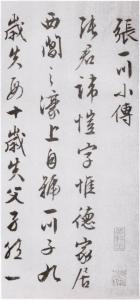 張一川小傳
張君諱愷字惟德家居
西閶之濠上自號一川子九
歲失母十歲失父子然一